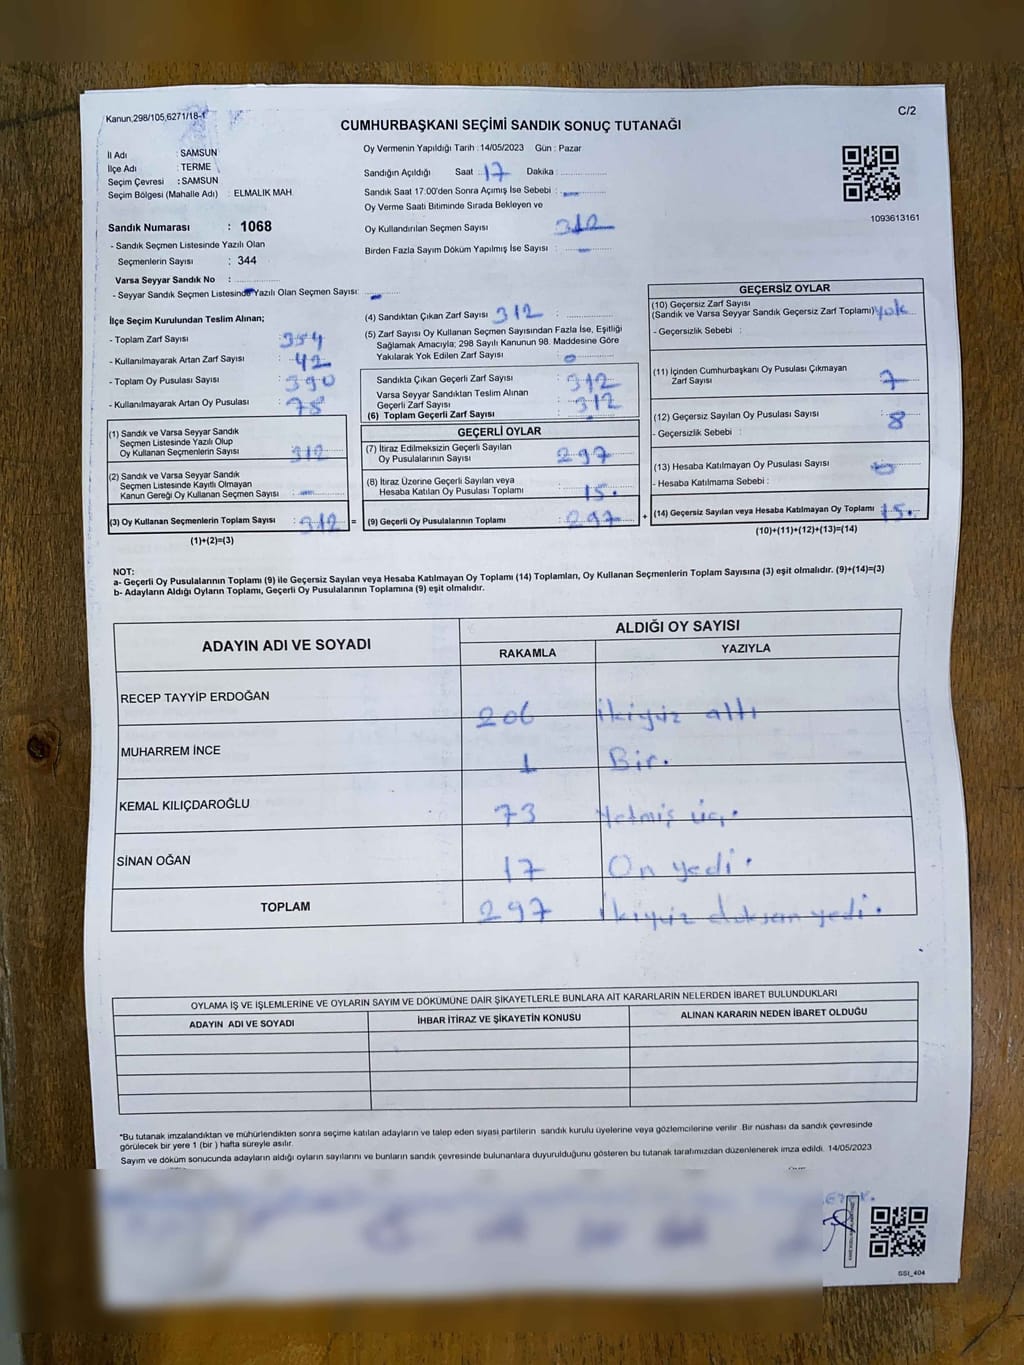 Kanun,298/105,6271/18-1
C/2
CUMHURBAŞKANI SEÇİMİ SANDIK SONUÇ TUTANAĞI
İl Adı : SAMSUN
İlçe Adı : TERME
Seçim Çevresi : SAMSUN
Seçim Bölgesi (Mahalle Adı) : ELMALIK MAH
Sandık Numarası : 1068
- Sandık Seçmen Listesinde Yazılı Olan
Seçmenlerin Sayısı : 344
Varsa Seyyar Sandık No :
- Seyyar Sandık Seçmen Listesinde Yazılı Olan Seçmen Sayısı: -
Oy Vermenin Yapıldığı Tarih : 14/05/2023 Gün : Pazar
Sandığın Açıldığı Saat : 17 Dakika :
Sandık Saat 17:00'den Sonra Açımış İse Sebebi : -
Oy Verme Saati Bitiminde Sırada Bekleyen ve
Oy Kullandırılan Seçmen Sayısı 312
Birden Fazla Sayım Döküm Yapılmış İse Sayısı : -
1093613161
İlçe Seçim Kurulundan Teslim Alınan;
- Toplam Zarf Sayısı : 354
- Kullanılmayarak Artan Zarf Sayısı : 42
- Toplam Oy Pusulası Sayısı : 390
- Kullanılmayarak Artan Oy Pusulası : 78
(1) Sandık ve Varsa Seyyar Sandık
Seçmen Listesinde Yazılı Olup
Oy Kullanan Seçmenlerin Sayısı : 312
(2) Sandık ve Varsa Seyyar Sandık
Seçmen Listesinde Kayıtlı Olmayan
Kanun Gereği Oy Kullanan Seçmen Sayısı : -
(3) Oy Kullanan Seçmenlerin Toplam Sayısı : 312 =
(1)+(2)=(3)
(4) Sandıktan Çıkan Zarf Sayısı 312 :
(5) Zarf Sayısı Oy Kullanan Seçmen Sayısından Fazla İse, Eşitliği
Sağlamak Amacıyla; 298 Sayılı Kanunun 98. Maddesine Göre
Yakılarak Yok Edilen Zarf Sayısı : 0
Sandıkta Çıkan Geçerli Zarf Sayısı : 312
Varsa Seyyar Sandıktan Teslim Alınan
Geçerli Zarf Sayısı : 312
(6) Toplam Geçerli Zarf Sayısı :
GEÇERLİ OYLAR
(7) İtiraz Edilmeksizin Geçerli Sayılan
Oy Pusulalarının Sayısı : 297
(8) İtiraz Üzerine Geçerli Sayılan veya
Hesaba Katılan Oy Pusulası Toplamı : 15.
(9) Geçerli Oy Pusulalarının Toplamı : 297 +
GEÇERSİZ OYLAR
(10) Geçersiz Zarf Sayısı
(Sandık ve Varsa Seyyar Sandık Geçersiz Zarf Toplamı) yok
- Geçersizlik Sebebi :
(11) İçinden Cumhurbaşkanı Oy Pusulası Çıkmayan
Zarf Sayısı : 7
(12) Geçersiz Sayılan Oy Pusulası Sayısı : 8
- Geçersizlik Sebebi :
(13) Hesaba Katılmayan Oy Pusulası Sayısı :
- Hesaba Katılmama Sebebi :
(14) Geçersiz Sayılan veya Hesaba Katılmayan Oy Toplamı : 15.
(10)+(11)+(12)+(13)=(14)
NOT:
a- Geçerli Oy Pusulalarının Toplamı (9) ile Geçersiz Sayılan veya Hesaba Katılmayan Oy Toplamı (14) Toplamları, Oy Kullanan Seçmenlerin Toplam Sayısına (3) eşit olmalıdır. (9)+(14)=(3)
b- Adayların Aldığı Oyların Toplamı, Geçerli Oy Pusulalarının Toplamına (9) eşit olmalıdır.
ADAYIN ADI VE SOYADI ALDIĞI OY SAYISI
RAKAMLA YAZIYLA
RECEP TAYYİP ERDOĞAN 206 ikiyüz altı
MUHARREM İNCE 1 Bir.
KEMAL KILIÇDAROĞLU 73 Yetmiş üç.
SİNAN OĞAN 17 On yedi.
TOPLAM 297 ikiyüz doksan yedi.
OYLAMA İŞ VE İŞLEMLERİNE VE OYLARIN SAYIM VE DÖKÜMÜNE DAİR ŞİKAYETLERLE BUNLARA AİT KARARLARIN NELERDEN İBARET BULUNDUKLARI
ADAYIN ADI VE SOYADI İHBAR İTİRAZ VE ŞİKAYETİN KONUSU ALINAN KARARIN NEDEN İBARET OLDUĞU
*Bu tutanak imzalandıktan ve mühürlendikten sonra seçime katılan adayların ve talep eden siyasi partilerin sandık kurulu üyelerine veya gözlemcilerine verilir. Bir nüshası da sandık çevresinde
görülecek bir yere 1 (bir) hafta süreyle asılır.
Sayım ve döküm sonucunda adayların aldığı oyların sayılarını ve bunların sandık çevresinde bulunanlara duyurulduğunu gösteren bu tutanak tarafımızdan düzenlenerek imza edildi. 14/05/2023
GSI_404